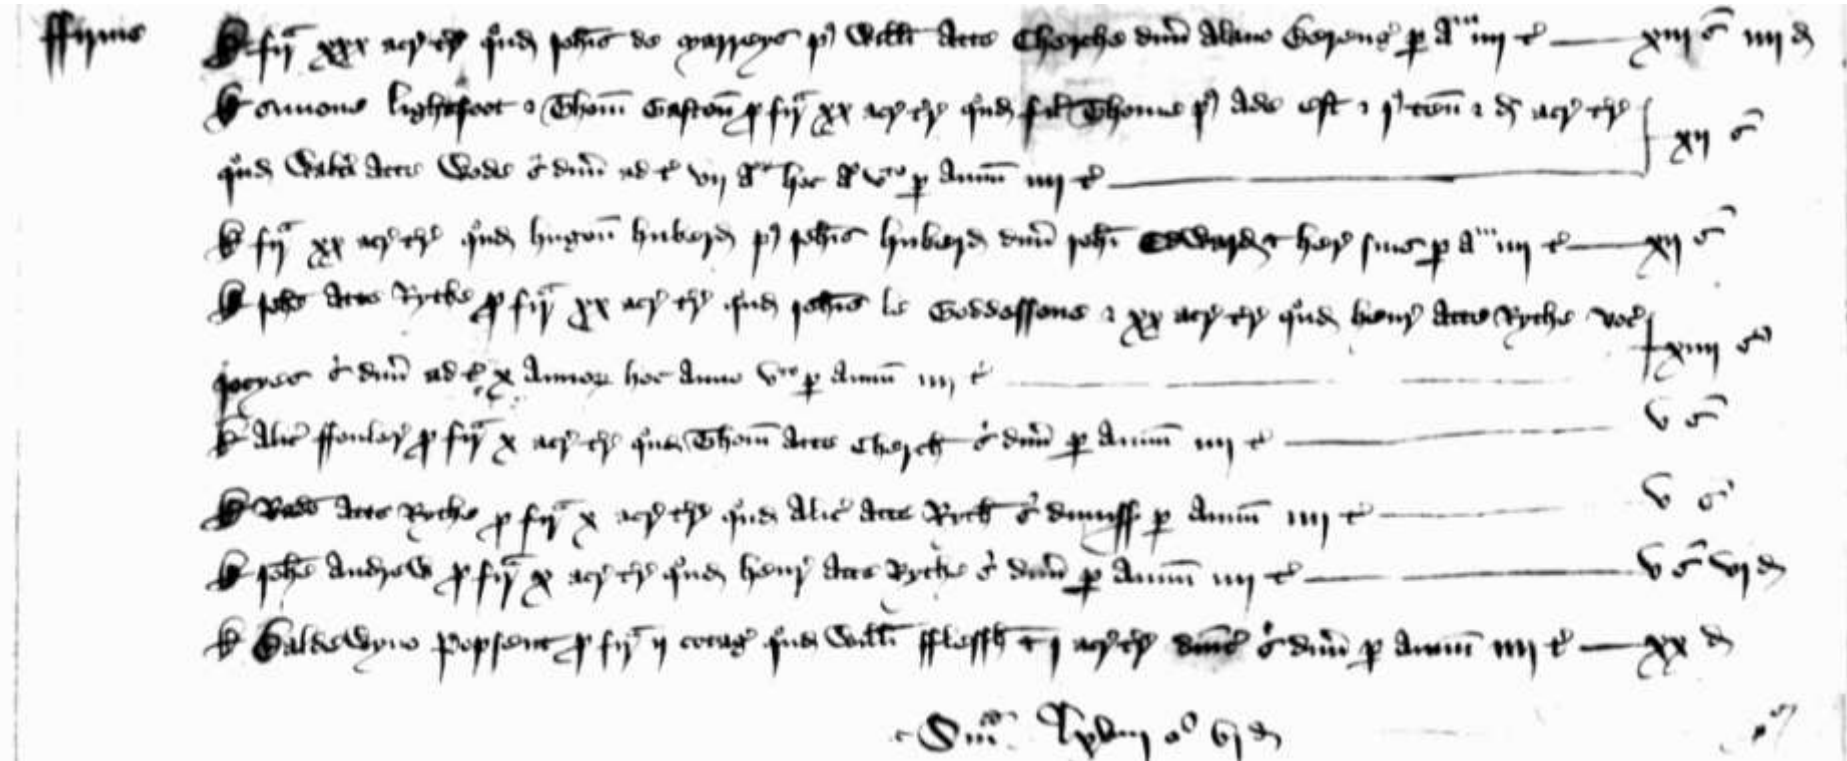 ffirme D firῑ xxx acr̄ terr̄ quōd Joh̄is de marreys p̱ Willi atte Cherche dim̄ Alano Gereng̉ p a^m iiii t̉ xiii s̄ iiii d
D Simone Lightfoot ⁊ Thom̄ Gaston̄ p fir̄ xx acr̄ terr̄ quōd fil Thome p̱ Ade est ⁊ ten̄ ⁊ di acr̄ terr̄
quōd Walt̉i atte Wode s̉ dim̄ ad t̉ vii a^r hoc a^o v^to p Annū iiii t̉ xii s̄
D fir̄ xx acr̄ terr̄ quōd hugon̄ huberd p̱ Joh̄is huberd dim̄ Joh̄i Edward ⁊ her̄ suis p a^m iiii t̉ xii s̄
D Joh̄e atte Rythe p fir̄ xx acr̄ terr̄ quōd Joh̄is le Goddessone ⁊ xx acr̄ terr̄ quōd henr̄ atte Rythe voc̉
Joeyes s̉ dim̄ ad t̉ x Annor̄ hoc Anno v^to p Annū iiii t̉ xiiii s̄
D Alic̉ ffouler̄ p fir̄ x acr̄ terr̄ quōd Thom̄ atte Cherch s̉ dim̄ p Annū iiii t̉ v s̄
D Rado atte Rythe p fir̄ x acr̄ terr̄ quōd Alic̉ atte Ryth s̉ dimiss p Annū iiii t̉ v s̄
D Joh̄e Andrew p fir̄ x acr̄ terr̄ quōd henr̄ atte Rythe s̉ dim̄ p Annū iiii t̉ v s̄ vi d
D Baldewyno Popsent p fir̄ ii cotag̉ quōd Willi fflessh ⁊ i acr̄ terr̄ s̉ dim̄ p Annū iiii t̉ xx d
Sm̄^a lxviii s̄ vi d